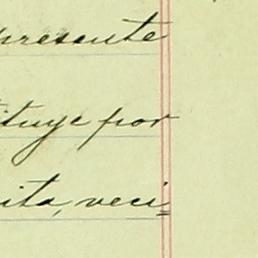 presente
tituye por
ita, veci=